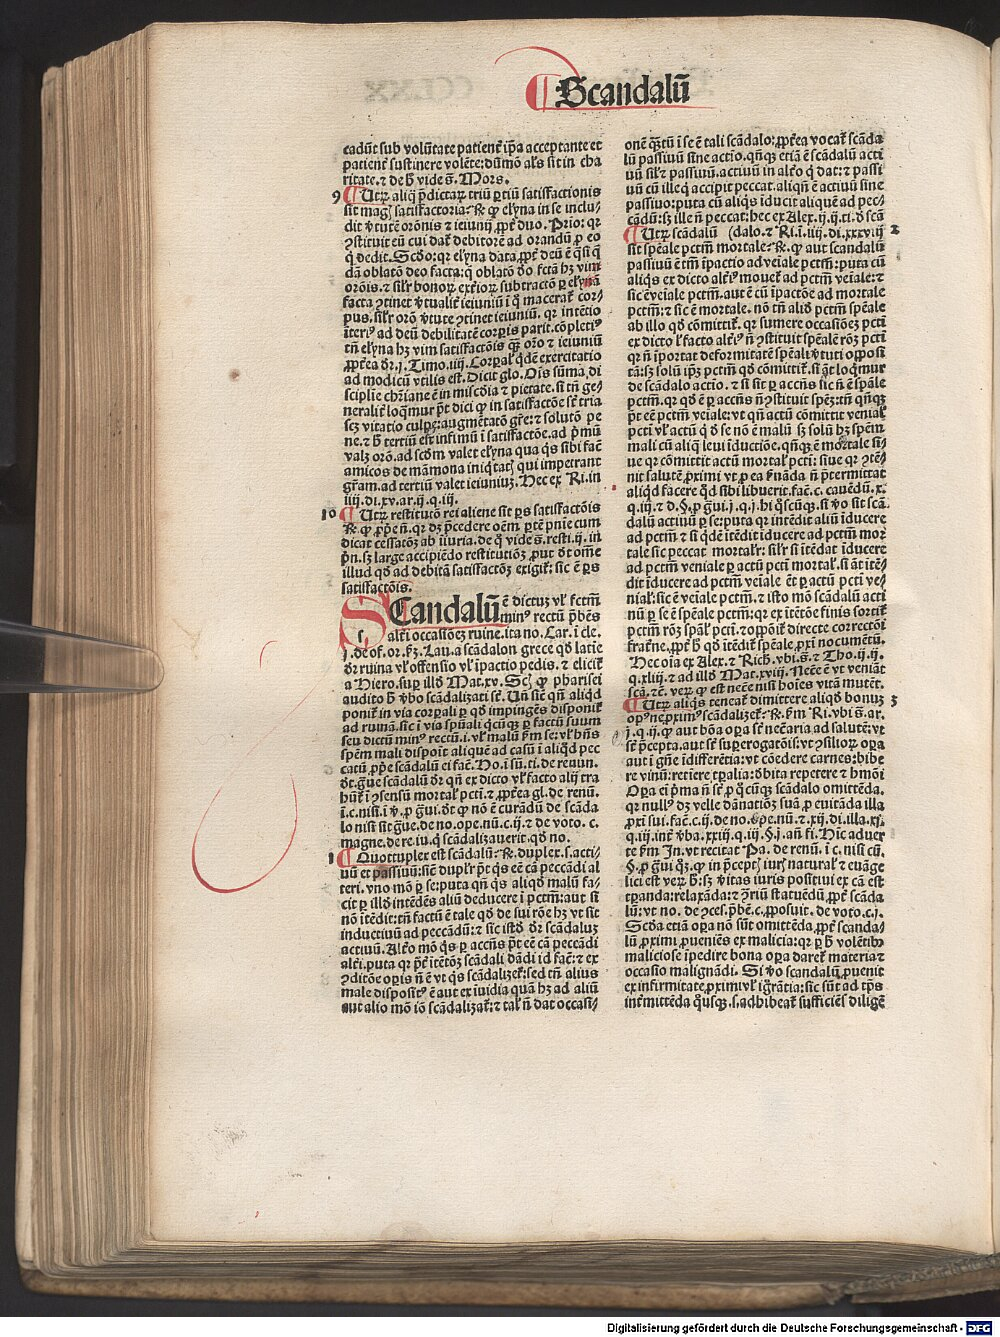 Scandalū
cadūt sub volūtate patient̄ ip̄a acceptante et
patient̄ sustinere volēte: dūmō al's sit in cha
ritate. ⁊ de h̄ vide s̄. Mors.
9 ¶ Utrꝝ aliq̄ p̄dictaꝝ triū ꝑtiū satisfactionis
sit mag satisfactoria. ℞. ꝙ elyna in se inclu/
dit v̓tutē orōnis ⁊ ieiunij ꝓpt̄ duo. Prio: qꝛ
ꝯstituit eū cui daꞇ̄ debitorē ad orandū ꝓ eo
q̄ dedit. Scd̓o: qꝛ elyna data ꝓpt̄ deū ē q̄si q̄
dā oblatō deo facta: q̄ oblatō d̓o fctā hꝫ vim
orōis. ⁊ silr̄ bonoꝝ exr̄ioꝝ subtractō ꝑ elynā
facta ꝯtinet v̓tualit̄ ieiuniū ī q̄ maceraꞇ̄ cor/
pus. silr̄ orō v̓tute ꝯtinet ieiuniū. qꝛ intētio
īteri ad deū debilitatē corꝑis parit. cōplet
tn̄ elyna hꝫ vim satisfactōis q̄ꝫ orō ⁊ ieiuniū
ꝓpt̄ea dr̄. j. Timo. iiij. Corꝑal' q̄dē exercitatio
ad modicū vtilis est. Dicit glo. Ois sūma di
sciplīe chr̄iane ē in misc̄dia ⁊ pietate. si tn̄ ge/
neralit̄ loq̄mur pt̄ dici ꝙ in satisfactōe st̄ tria
scꝫ vitatio culpꝫ: augmētatō gr̄e: ⁊ solutō pe
ne. ⁊ h̄ tertiū est infimū ī satisfactōe. ad p̄mū
valꝫ orō. ad sc̄dm valet elyna qua q̄s sibi facē
amicos de māmona iniq̄ta qui imperant
gr̄am. ad tertiū valet ieiuniuꝫ. Hec ex Ri. in
iiij. di. xv. ar. ij. q. iij.
10 ¶ Utrꝝ restitutō rei aliene sit ꝑs satisfactōis
℞. ꝙ ꝓp̄e n̄. qꝛ dꝫ p̄cedere oēm ꝑtē pnīe cum
dicat cessatōꝫ ab iīuria. de q̄ vide s̄. resti. ij. in
pn̄. sꝫ large accipiēdo restitutiōꝫ ꝓut dt̄ om̄e
illud qd̄ ad debitā satisfactōꝫ exigiꞇ̄: sic ē ꝑs
satisfactōis.
SCandalū ē dictuꝫ vl' fctm̄
min rectū p̄bēs
alt̄i occasiōeꝫ ruine. ita no. Car. ī cle.
j. de of. or. Lau. a scādalon grece qd̄ latīe
dr̄ ruina vl' offensio vl' īpactio pedis. ⁊ eliciꞇ̄
a Hiero. suꝑ illd̓ Mat. xv. ꝙ pharisei
audito h̄ v̓bo scādalizati st̄. Un̄ sic̄ qn̄ aliqd̄
poniꞇ̄ in via corꝑali ꝑ qd̄ impingēs disponiꞇ̄
ad ruinā. sic ī via spūali q̄cūqꝫ ꝑ factū suum
seu dictū min rectū. i. vl' malū km̄ se: vl' hn̄s
spēm mali dispōit aliquē ad casū ī aliqd̄ pec
catū ꝓp̄e scādalū ei facē. Ho. ī sū. ti. de renun.
dt̄. q̄ue scādalū dr̄ qn̄ ex dicto vl' facto alij tra
huꞇ̄ ī ꝯsensū mortal' pcti. ⁊ ꝓpt̄ea gl. de renū.
ī. c. nisi. ī v̓. ꝓ gui. dt̄ ꝙ nō ē curādū de scāda
lo nisi sit gue. de no. ope. nū. c. ij. ⁊ de voto. c.
magne. de re. iu. q̄ scādalizauerit. qd̄ no.
1 ¶ Quottuplex est scādalū. ℞. duplex. s. acti/
uū et passiuū: sic̄ duplr̄ pt̄ q̄s eē cā peccādi al
teri. vno mō ꝑ se: puta qn̄ q̄s aliqd̄ malū fa/
cit ꝑ illd̓ intēdēs aliū deducere ī pctm̄: aut si
nō ītēdit: tn̄ factū ē tale qd̄ de sui rōe hꝫ vt sit
inductiuū ad peccādū: ⁊ sic istd̓ dr̄ scādaluꝫ
actiuū. Alt̄o mō q̄s ꝑ accn̄s pt̄ eē cā peccādi
alt̄i. puta qꝛ pt̄ ītētōꝫ scādali dādi id facē: ⁊ ex
ꝯditōe oꝑis n̄ ē vt q̄s scādalizeꞇ̄: sed tn̄ alius
male disposit ē aut ex iuidia quā hꝫ ad aliū
aut alio mō iō scādalizaꞇ̄: ⁊ tal' n̄ dat occasi/
onē q̄ꝫtū ī se ē tali scādalo: ꝓpt̄ea vocaꞇ̄ scāda
lū passiuū sine actio. qn̄qꝫ etiā ē scādalū acti
uū sil' ⁊ passiuū. actiuū in alt̄o q̄ dat: ⁊ passi
uū cū ille q̄ accipit peccat. aliqn̄ ē actiuū sine
passiuo: puta cū aliq̄s īducit aliquē ad pec/
cādū: sꝫ ille n̄ peccat: hec ex Alex. ij. ij. ti. d̓ scā
¶ Utrꝝ scādalū (dalo. ⁊ Ri. ī. iiij. di. xxxviij 2
sit spēale pctm̄ mortale. ℞. ꝙ aut scandalū
passiuū ē tm̄ īpactio ad veīale pctm̄: puta cū
aliq̄s ex dicto alt̄i moueꞇ̄ ad pctm̄ veīale: ⁊
sic ē veīale pctm̄. aut ē cū īpactōe ad mortale
pctm̄: ⁊ sic ē mortale. nō tn̄ aliō pctm̄ spēale
ab illo qd̄ cōmittiꞇ̄. qꝛ sumere occasiōeꝫ pcti
ex dicto l' facto alt̄i n̄ ꝯstituit spēalē rōꝫ pcti
qꝛ n̄ īportat deformitatē spēali v̓tuti oppōsi
tā: sꝫ solū ip̄ꝫ pctm̄ qd̄ cōmittiꞇ̄. si āt loq̄mur
de scādalo actio. ⁊ si sit ꝑ accn̄s sic n̄ ē spēale
pctm̄. qꝛ qd̄ ē ꝑ accn̄s n̄ ꝯstituit spēꝫ: tn̄ qn̄qꝫ
pt̄ eē pctm̄ veīale: vt qn̄ actū cōmittit veniaľ
pcti vl' actū qd̄ se nō ē malū sꝫ solū hꝫ spēm
mali cū aliq̄ leui īductiōe. qn̄qꝫ ē mortale si/
ue qꝛ cōmittit actū mortal' pcti: siue qꝛ ꝯtē/
nit salutē ꝓximi vt ꝓ ea ẜuāda n̄ p̄termittat
aliqd̄ facere qd̄ sibi libuerit. faē. c. cauēdū. x.
q. iij. ⁊ d. §. ꝓ gui. j. q. j. hi q̄scūqꝫ. si v̓o sit scā
dalū actiuū ꝑ se: puta qꝛ intēdit aliū īducere
ad pctm̄ ⁊ si q̄dē ītēdit īducere ad pctm̄ mor
tale sic peccat mortalr̄: silr̄ si ītēdat īducere
ad pctm̄ veniale ꝑ actū pcti mortal'. si āt ītē/
dit īducere ad pctm̄ veīale ēt ꝑ actū pcti ve/
nial': sic ē veīale pctm̄. ⁊ isto mō scādalū acti
nū ꝑ se ē spēale pctm̄: qꝛ ex ītētōe finis sortiꞇ̄
pctm̄ rōꝫ spāl' pcti. ⁊ oppōiꞇ̄ directe correctōi
frat̄ne. ꝓpt̄ h̄ qd̄ ītēdit spēale ꝓxi nocumētū.
Hec oīa ex Alex. ⁊ Rich. vbi. s̄. ⁊ Tho. ij. ij.
q. xliij. ⁊ ad illd̓ Mat. xviij. Neēe ē vt veniāt
scā. ⁊c̄. veꝝ ꝙ est neēe nisi hoīes vitā mutēt.
¶ Utrꝝ aliq̄s teneaꞇ̄ dimittere aliqd̄ bonuꝫ 3
opne ꝓxim scādalizeꞇ̄. ℞. km̄ Ri. vbi s̄. ar.
j. q. ij. ꝙ aut bōa oꝑa st̄ nēc̄aria ad salutē: vt
st̄ p̄cepta. aut st̄ suꝑerogatōis: vt ꝯsilioꝝ oꝑa
aut ī gn̄e īdifferētia: vt cōedere carnes: bibe
re vinū: retiēre tꝑalia: d̓bita repetere ⁊ hmōi
Oꝑa ei p̄ma n̄ st̄ ꝓ q̄cūqꝫ scādalo omittēda.
qꝛ null dꝫ velle dānatiōꝫ suā ꝓ euitāda illa
ꝓxi sui. faē. c. ij. de no. ope. nū. ⁊ xij. di. illa. xj.
q. iij. int̄ v̓ba. xxiij. q. iij. §. j. an̄ fi. Hic aduer
te km̄ Jn. vt recitat Pa. de renū. ī. c. nisi cū.
§. ꝓ gui q̄ꝫ. ꝙ in p̄cept iuris natural' ⁊ euāge
lici est veꝝ h̄: sꝫ v̓itas iuris positiui ex cā est
tꝑanda: relaxāda: ⁊ ꝯriū statuēdū ꝓpt̄ scāda
lū: vt no. de ꝯces. p̄bē. c. ꝓposuit. de voto. c. j.
Scd̓a etiā oꝑa nō sūt omittēda ꝓpt̄ scanda/
lū ꝓximi ꝓueniēs ex malicia: qꝛ ꝑ h̄ volētib
maliciose īpedire bona oꝑa dareꞇ̄ materia ⁊
occasio malignādi. Si v̓o scandalū ꝓuenit
ex infirmitate ꝓximi vl' igrātia: sic sūt ad tp̄s
int̄mittēda q̄usqꝫ. s. adhibeaꞇ̄ sufficiēs diligē
Digitalisierung gefördert durch die Deutsche Forschungsgemeinschaft - DFG